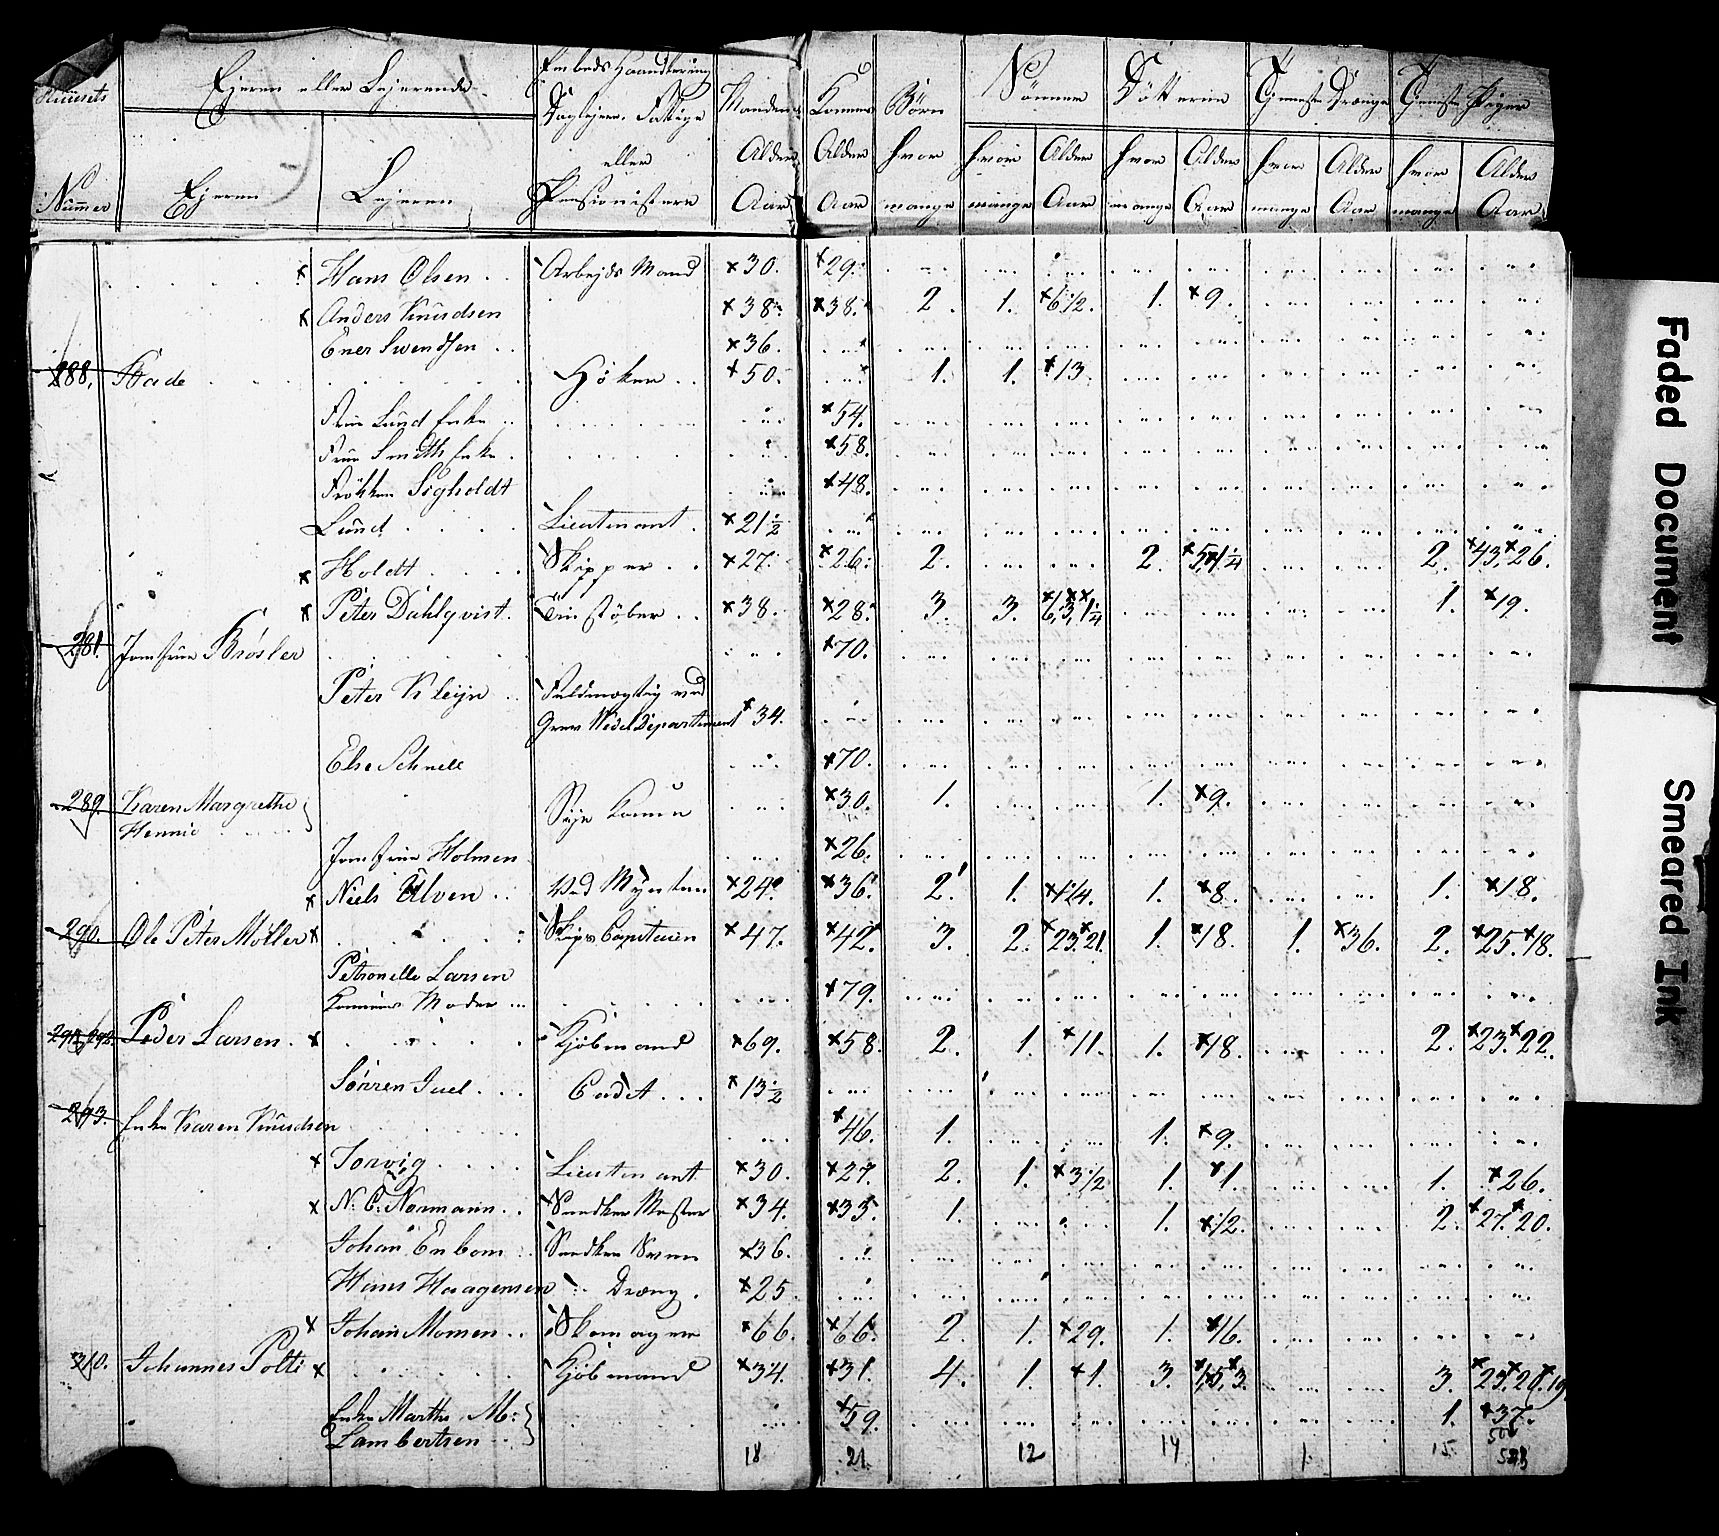 Huusets Nummer | Ejeren eller Lejerende. | Embeds Haandtering Daglejere. Fattige eller Pensionistere | Mandens Alder Aar | Konens Alder Aar | Børn hvor mange | Sønner | Døttrene | Tjeneste Drænge | Tjeneste Piger
Ejeren | Lejeren | hvor mange | Alder Aar | hvor mange | Alder Aar | hvor mange | Alder Aar | hvor mange | Alder Aar
x Hans Olsen | Arbejds Mand | x30. | x29.
x Anders Knudsen | x38. | x38. | 2. | 1. | x6 1/2. | 1. | x9.
Ener Swendsen | x36.
288. | Høker | x50. | 1. | 1. | x13.
Frue Lund Enke | x54.
Frue Smith Enke | x58.
Frøken Sigholdt | x48.
Lund | Lieutenant | x21 1/2
x Holdt | Skipper | x27. | x26. | 2. | 2. | x5. 1/4 | 2. | x43. x26.
x Peter Dahlqvist | Tinstøber | x38. | x28. | 3. | 3. | x6, x3, x1 1/4 | 1. | x19.
281. | Jomfrue Brøsler | x70.
Peter Kleijn | Fuldmægtig ved
Grev Wedel Departement | x34.
Else Schnell | x70.
289. | Karen Margrethe
Hennic | Sye Konen | x30. | 1. | 1. | x9.
Jomfrue Holmen | x26.
x Niels Ulven | Ved Mynten | x24. | x36. | 2. | 1. | x1/4. | 1. | x8. | 1. | x18.
290. | Ole Peter Møller x | Skips Capitain | x47. | x42. | 3. | 2. | x23. x21. | 1. | x18. | 1. | x36. | 2. | x25. x18.
Petronelle Larsen
Konens Moder | x79.
292. | Peder Larsen. x | Kjøbmand | x69. | x58. | 2. | 1. | x11. | 1. | x18. | 2. | x23. x22.
Sørren Juel | Cadet | x13 1/2
293. | Enke Karen Knudsen | x46. | 1. | 1. | x9.
x Torvig | Lieutenant | x30. | x27. | 2. | 1. | x3 1/2 | 1. | x1. | 1. | x26.
x N: C: Normann | Snedker Mester | x34. | x35. | 1. | 1. | x1/2. | 2. | x27. x20.
Johan Enbom | Snedker Svenn | x36.
Hans Haagensen | Dreng. | x25
x Johan Monsen | Skomager | x66. | x66. | 2. | 1. | x29. | 1. | x16.
310. | Johannes Polti x | Kjøbmand | x34. | x31. | 4. | 1. | x1. | 3. | x1, 5, x3. | 3. | x23. x20. x19
Enke Marthe M:
Lambertsen | x59. | 1. | x37.
18 | 21. | 12 | 14 | 1 | 15.
Faded Document
Smeared Ink